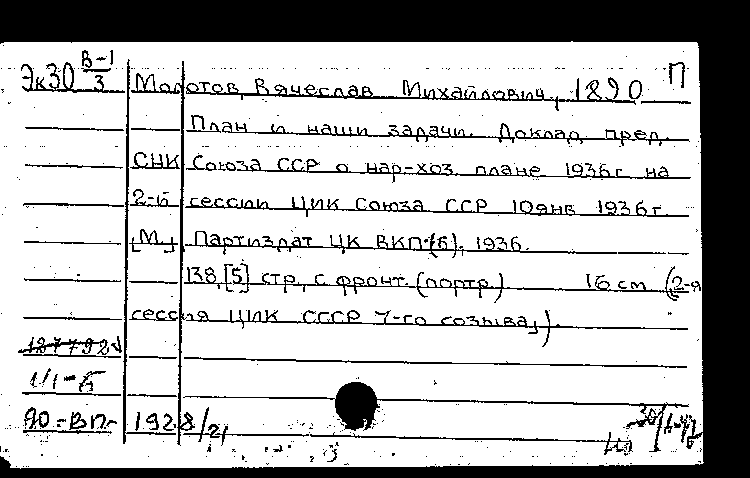 Эк30 В-1/3 Молотов, Вячеслав Михайлович, 1890 П
План и наши задачи. Доклад пред.
СНК Союза ССР о нар-хоз. плане 1936 г. на
2-й сессии ЦИК Союза ССР 10 янв 1936 г.
[М.], Партиздат ЦК ВКП(б), 1936.
138, [5] стр, с фронт. (портр.) 16 cm (2-я
сессия ЦИК СССР 7-го созыва,).
1928/21